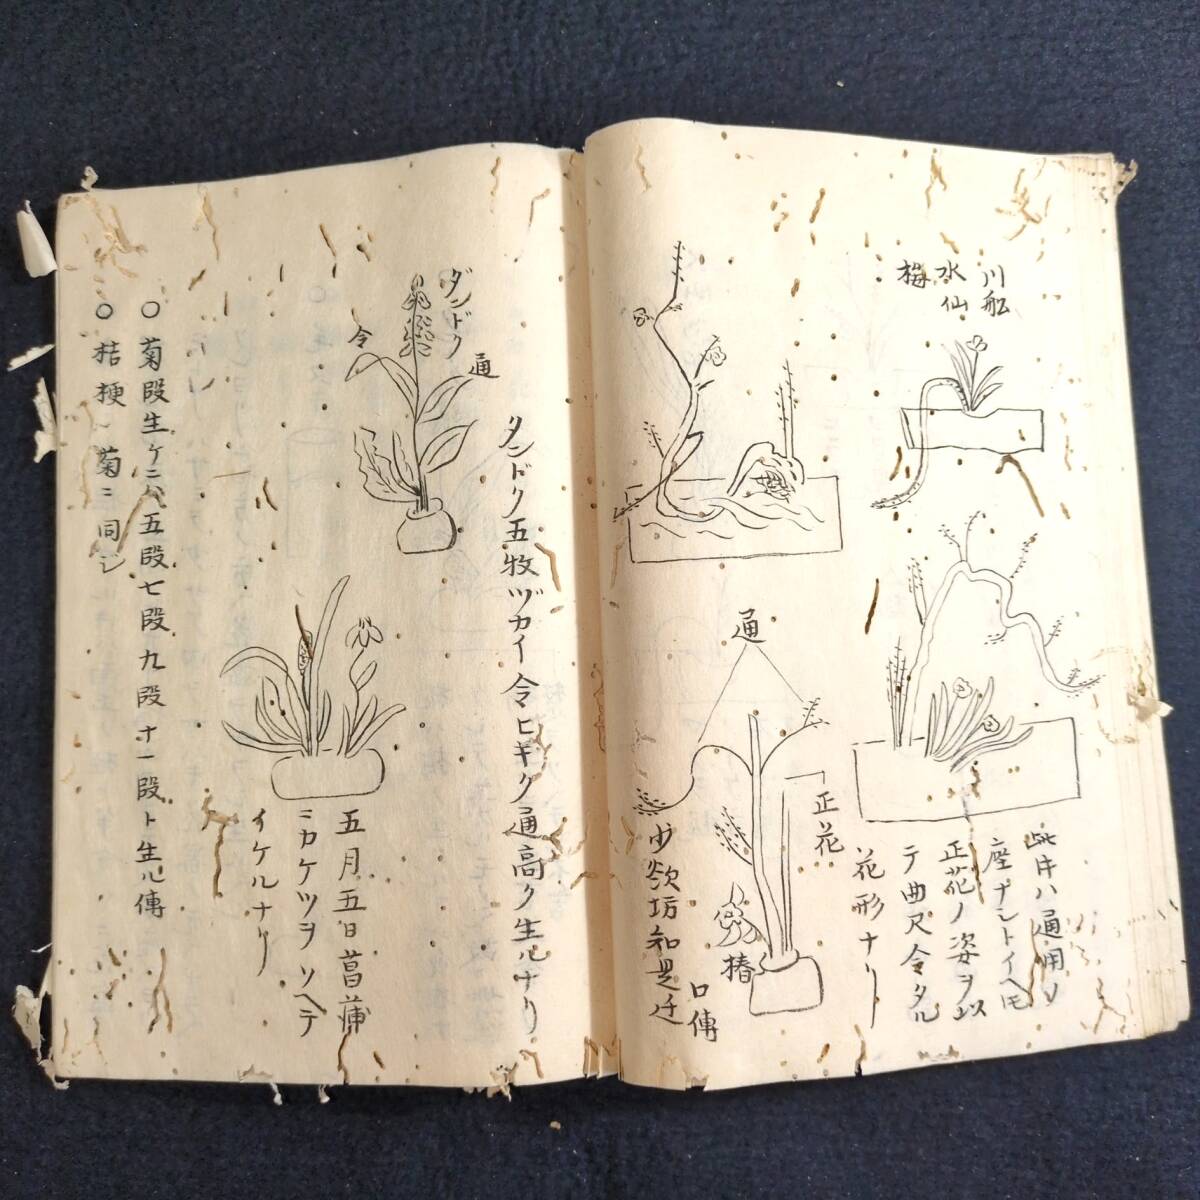 川船
水仙
梅
此圧ハ通用ノ
座ナントイヘ圧
正花ノ姿ヲ以
テ曲尺令タル
花形ナリ
通
正花
椿
口傳
少欲坊知足迁
タンドク五牧ヅカイ令ヒギク通高ク生ルナリ
ダンドク
通
令
五月五日菖蒲
ニカケツヲソヘテ
イケルナリ
〇菊段生ケニハ五段七段九段十一段ト生ル傳
〇桔梗菊ニ同ジ